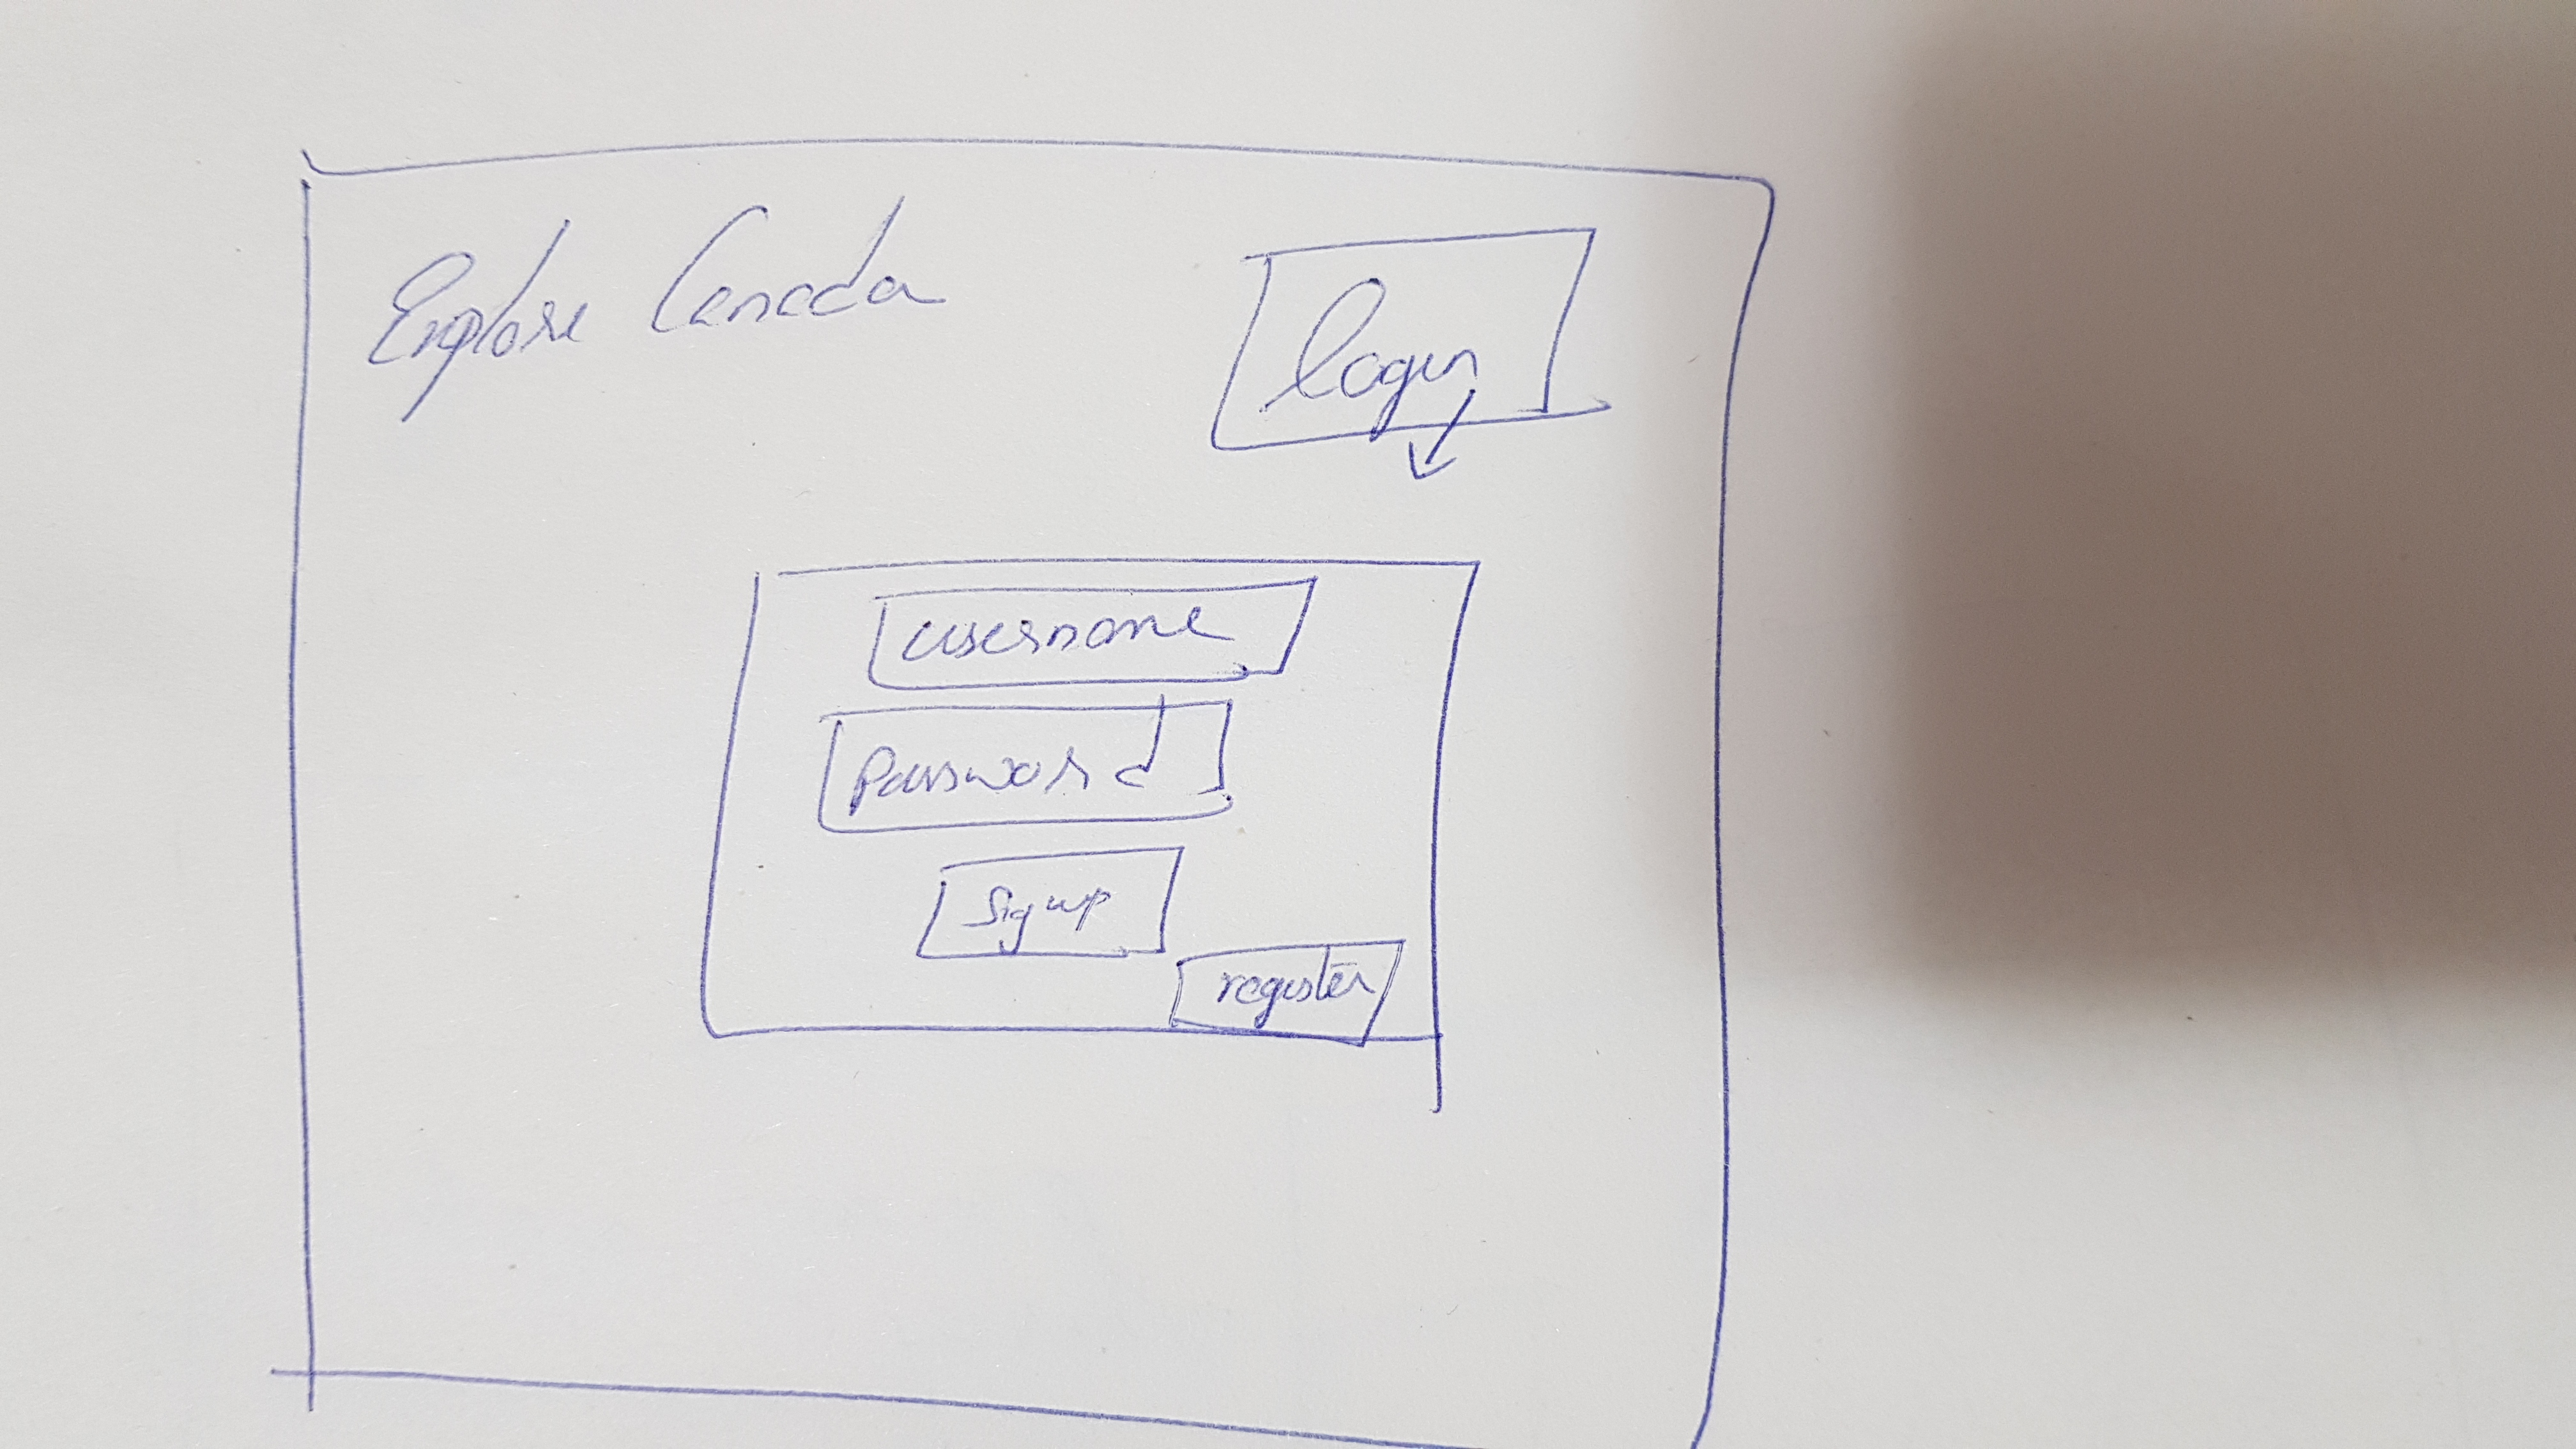 Explore Canada
Login
username
Password
Sign up
register